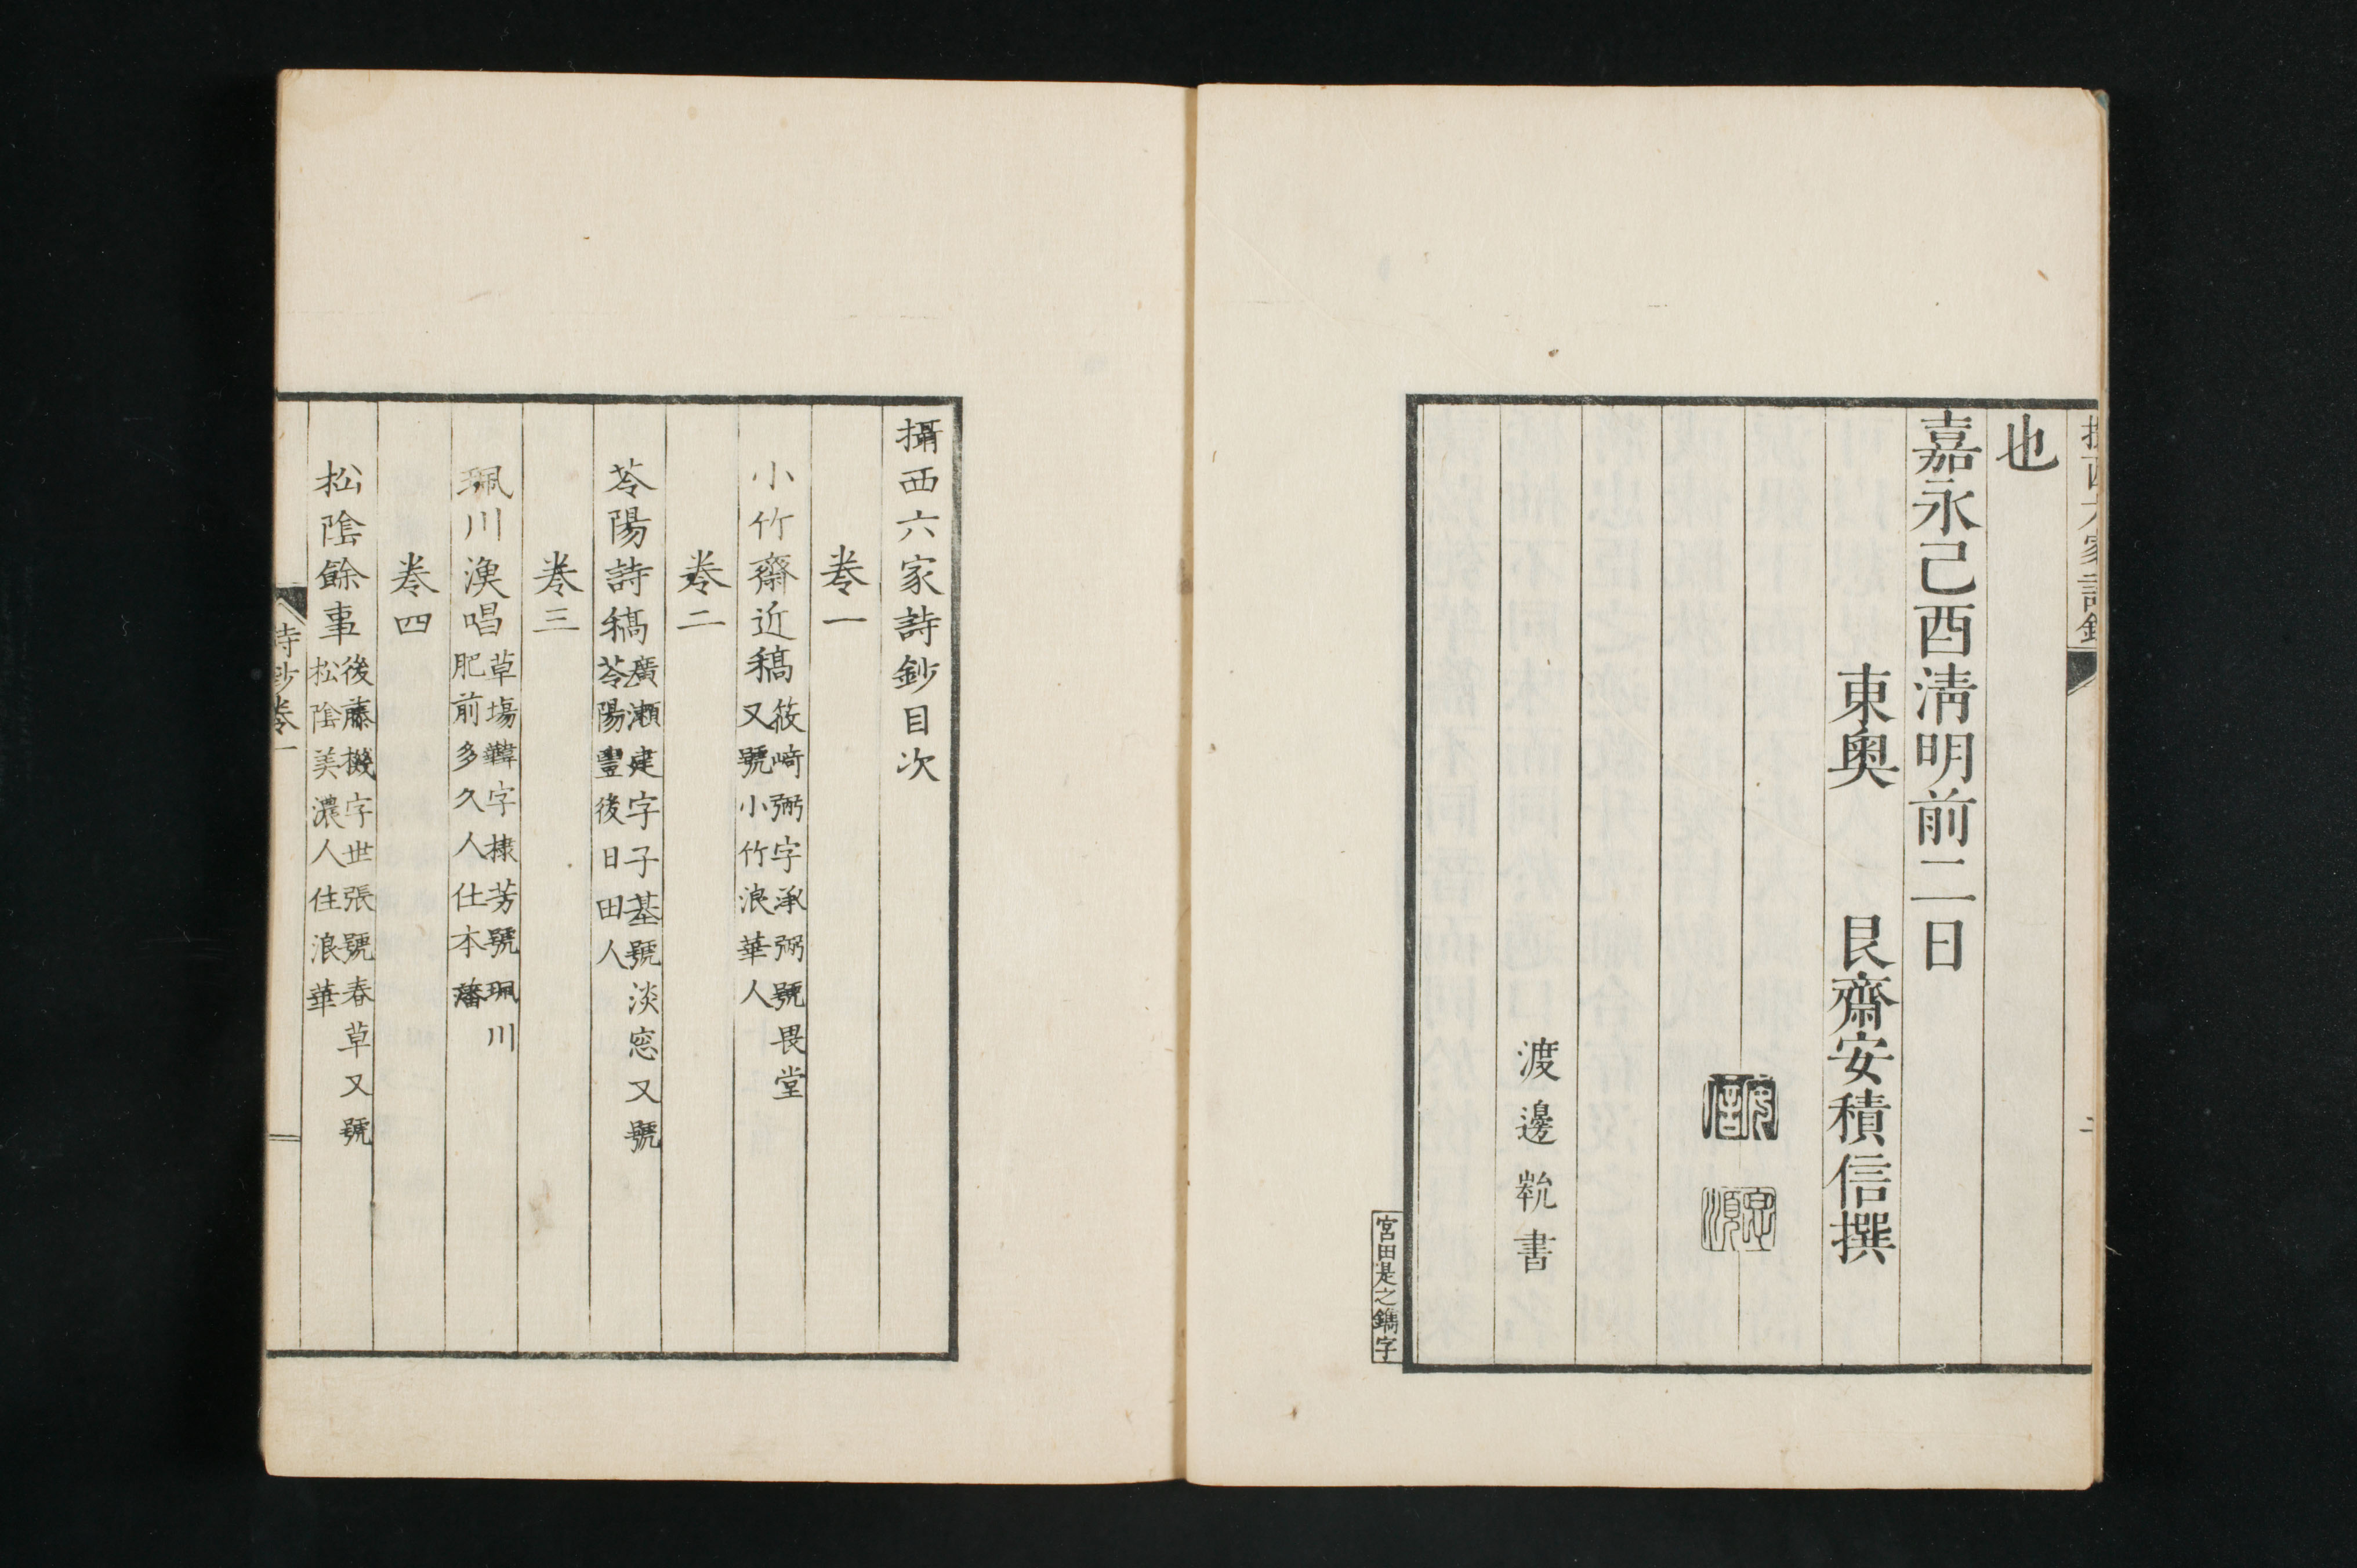 也
嘉永己酉淸明前二日
東奥 艮齋安積信撰
渡邊㪽書
宮田是之鐫字
攝西六家詩鈔目次
卷一
小竹齋近稿 筱﨑弼字承弼號畏堂
又號小竹浪華人
卷二
苓陽詩稿 廣瀬建字子基號淡窓又號
苓陽豐後日田人
卷三
珮川漁唱 草塲韡字棣芳號珮川
肥前多久人仕本藩
卷四
松陰餘事 後藤機字世張號春草又號
松陰美濃人住浪華
詩鈔卷一